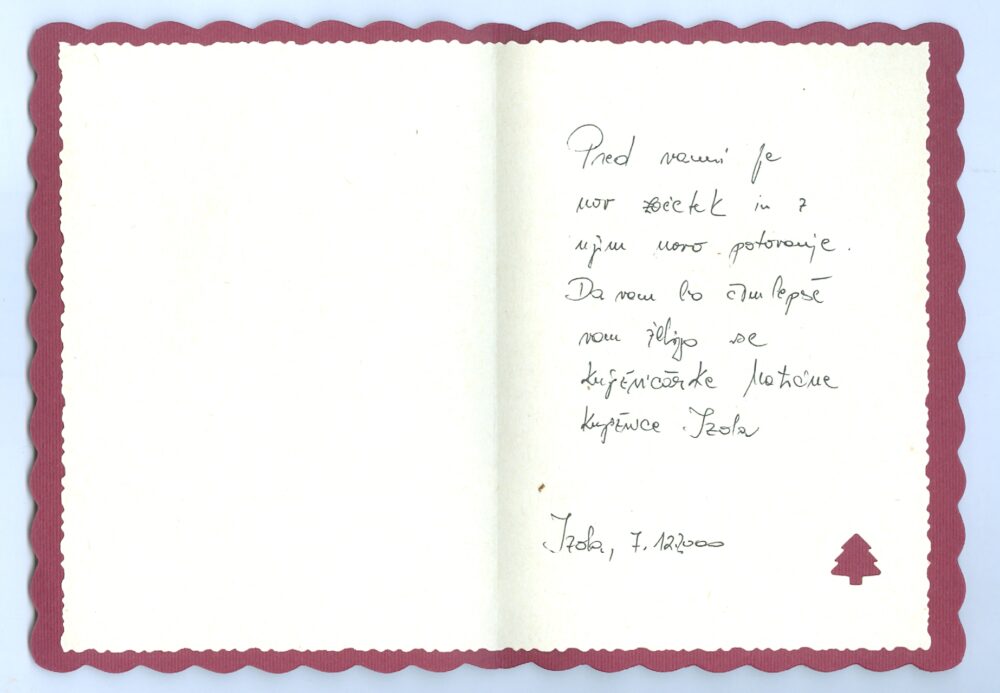 Pred vami je
nov začetek in z
njim novo potovanje.
Da vam bo čim lepše
vam želijo vse
knjižničarke Matične
knjižnice Izola
Izola, 7.12.2000